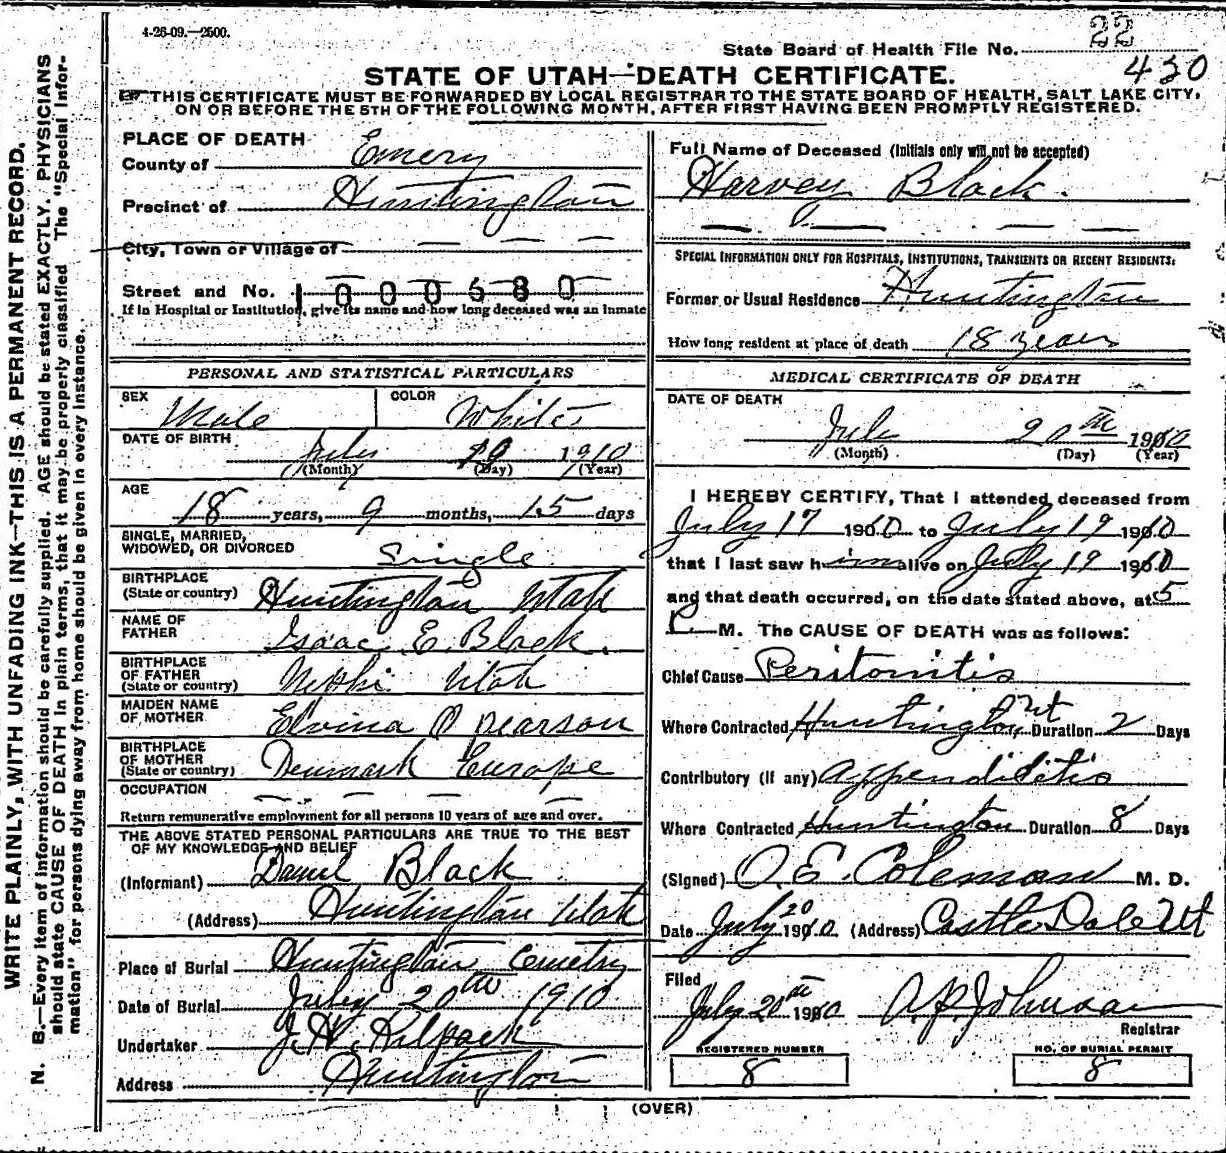 4-26-09.—2500.
State Board of Health File No. 22
430
STATE OF UTAH—DEATH CERTIFICATE.
THIS CERTIFICATE MUST BE FORWARDED BY LOCAL REGISTRAR TO THE STATE BOARD OF HEALTH, SALT LAKE CITY,
ON OR BEFORE THE 5TH OF THE FOLLOWING MONTH, AFTER FIRST HAVING BEEN PROMPTLY REGISTERED.
WRITE PLAINLY, WITH UNFADING INK—THIS IS A PERMANENT RECORD.
N. B.—Every item of information should be carefully supplied. AGE should be stated EXACTLY. PHYSICIANS
should state CAUSE OF DEATH in plain terms, that it may be properly classified. The "Special Infor-
mation" for persons dying away from home should be given in every instance.
PLACE OF DEATH
County of Emery
Precinct of Huntington
City, Town or Village of
Street and No. 1000680
If in Hospital or Institution, give its name and how long deceased was an inmate
PERSONAL AND STATISTICAL PARTICULARS
SEX Male COLOR White
DATE OF BIRTH July 1910
(Month) (Day) (Year)
AGE
18 years, 9 months, 15 days
SINGLE, MARRIED,
WIDOWED, OR DIVORCED Single
BIRTHPLACE
(State or country) Huntington Utah
NAME OF
FATHER Isaac E. Black.
BIRTHPLACE
OF FATHER
(State or country) Nephi Utah
MAIDEN NAME
OF MOTHER Elvina O pearson
BIRTHPLACE
OF MOTHER
(State or country) Denmark Europe
OCCUPATION
Return remunerative employment for all persons 10 years of age and over.
THE ABOVE STATED PERSONAL PARTICULARS ARE TRUE TO THE BEST
OF MY KNOWLEDGE AND BELIEF
(Informant) Daniel Black
(Address) Huntington Utah
Place of Burial Huntington Cemetry
Date of Burial July 20th 1910
Undertaker J. W. Kilpack
Address Huntington
Full Name of Deceased (Initials only will not be accepted)
Harvey Black.
SPECIAL INFORMATION ONLY FOR HOSPITALS, INSTITUTIONS, TRANSIENTS OR RECENT RESIDENTS:
Former or Usual Residence Huntington
How long resident at place of death 18 years
MEDICAL CERTIFICATE OF DEATH
DATE OF DEATH
July 20th 1910
(Month) (Day) (Year)
I HEREBY CERTIFY, That I attended deceased from
July 17 1910 to July 19 1910
that I last saw him alive on July 19 1910
and that death occurred, on the date stated above, at 5
P. M. The CAUSE OF DEATH was as follows:
Chief Cause Peritonitis
Where Contracted Huntington Ut Duration 2 Days
Contributory (if any) appendicitis
Where Contracted Huntington Duration 8 Days
(Signed) O. E. Coleman M. D.
Date July 20 1910 (Address) Castle Dale Ut
Filed
July 20th 1910 A. P. Johnson
Registrar
REGISTERED NUMBER
8
NO. OF BURIAL PERMIT
8
(OVER)